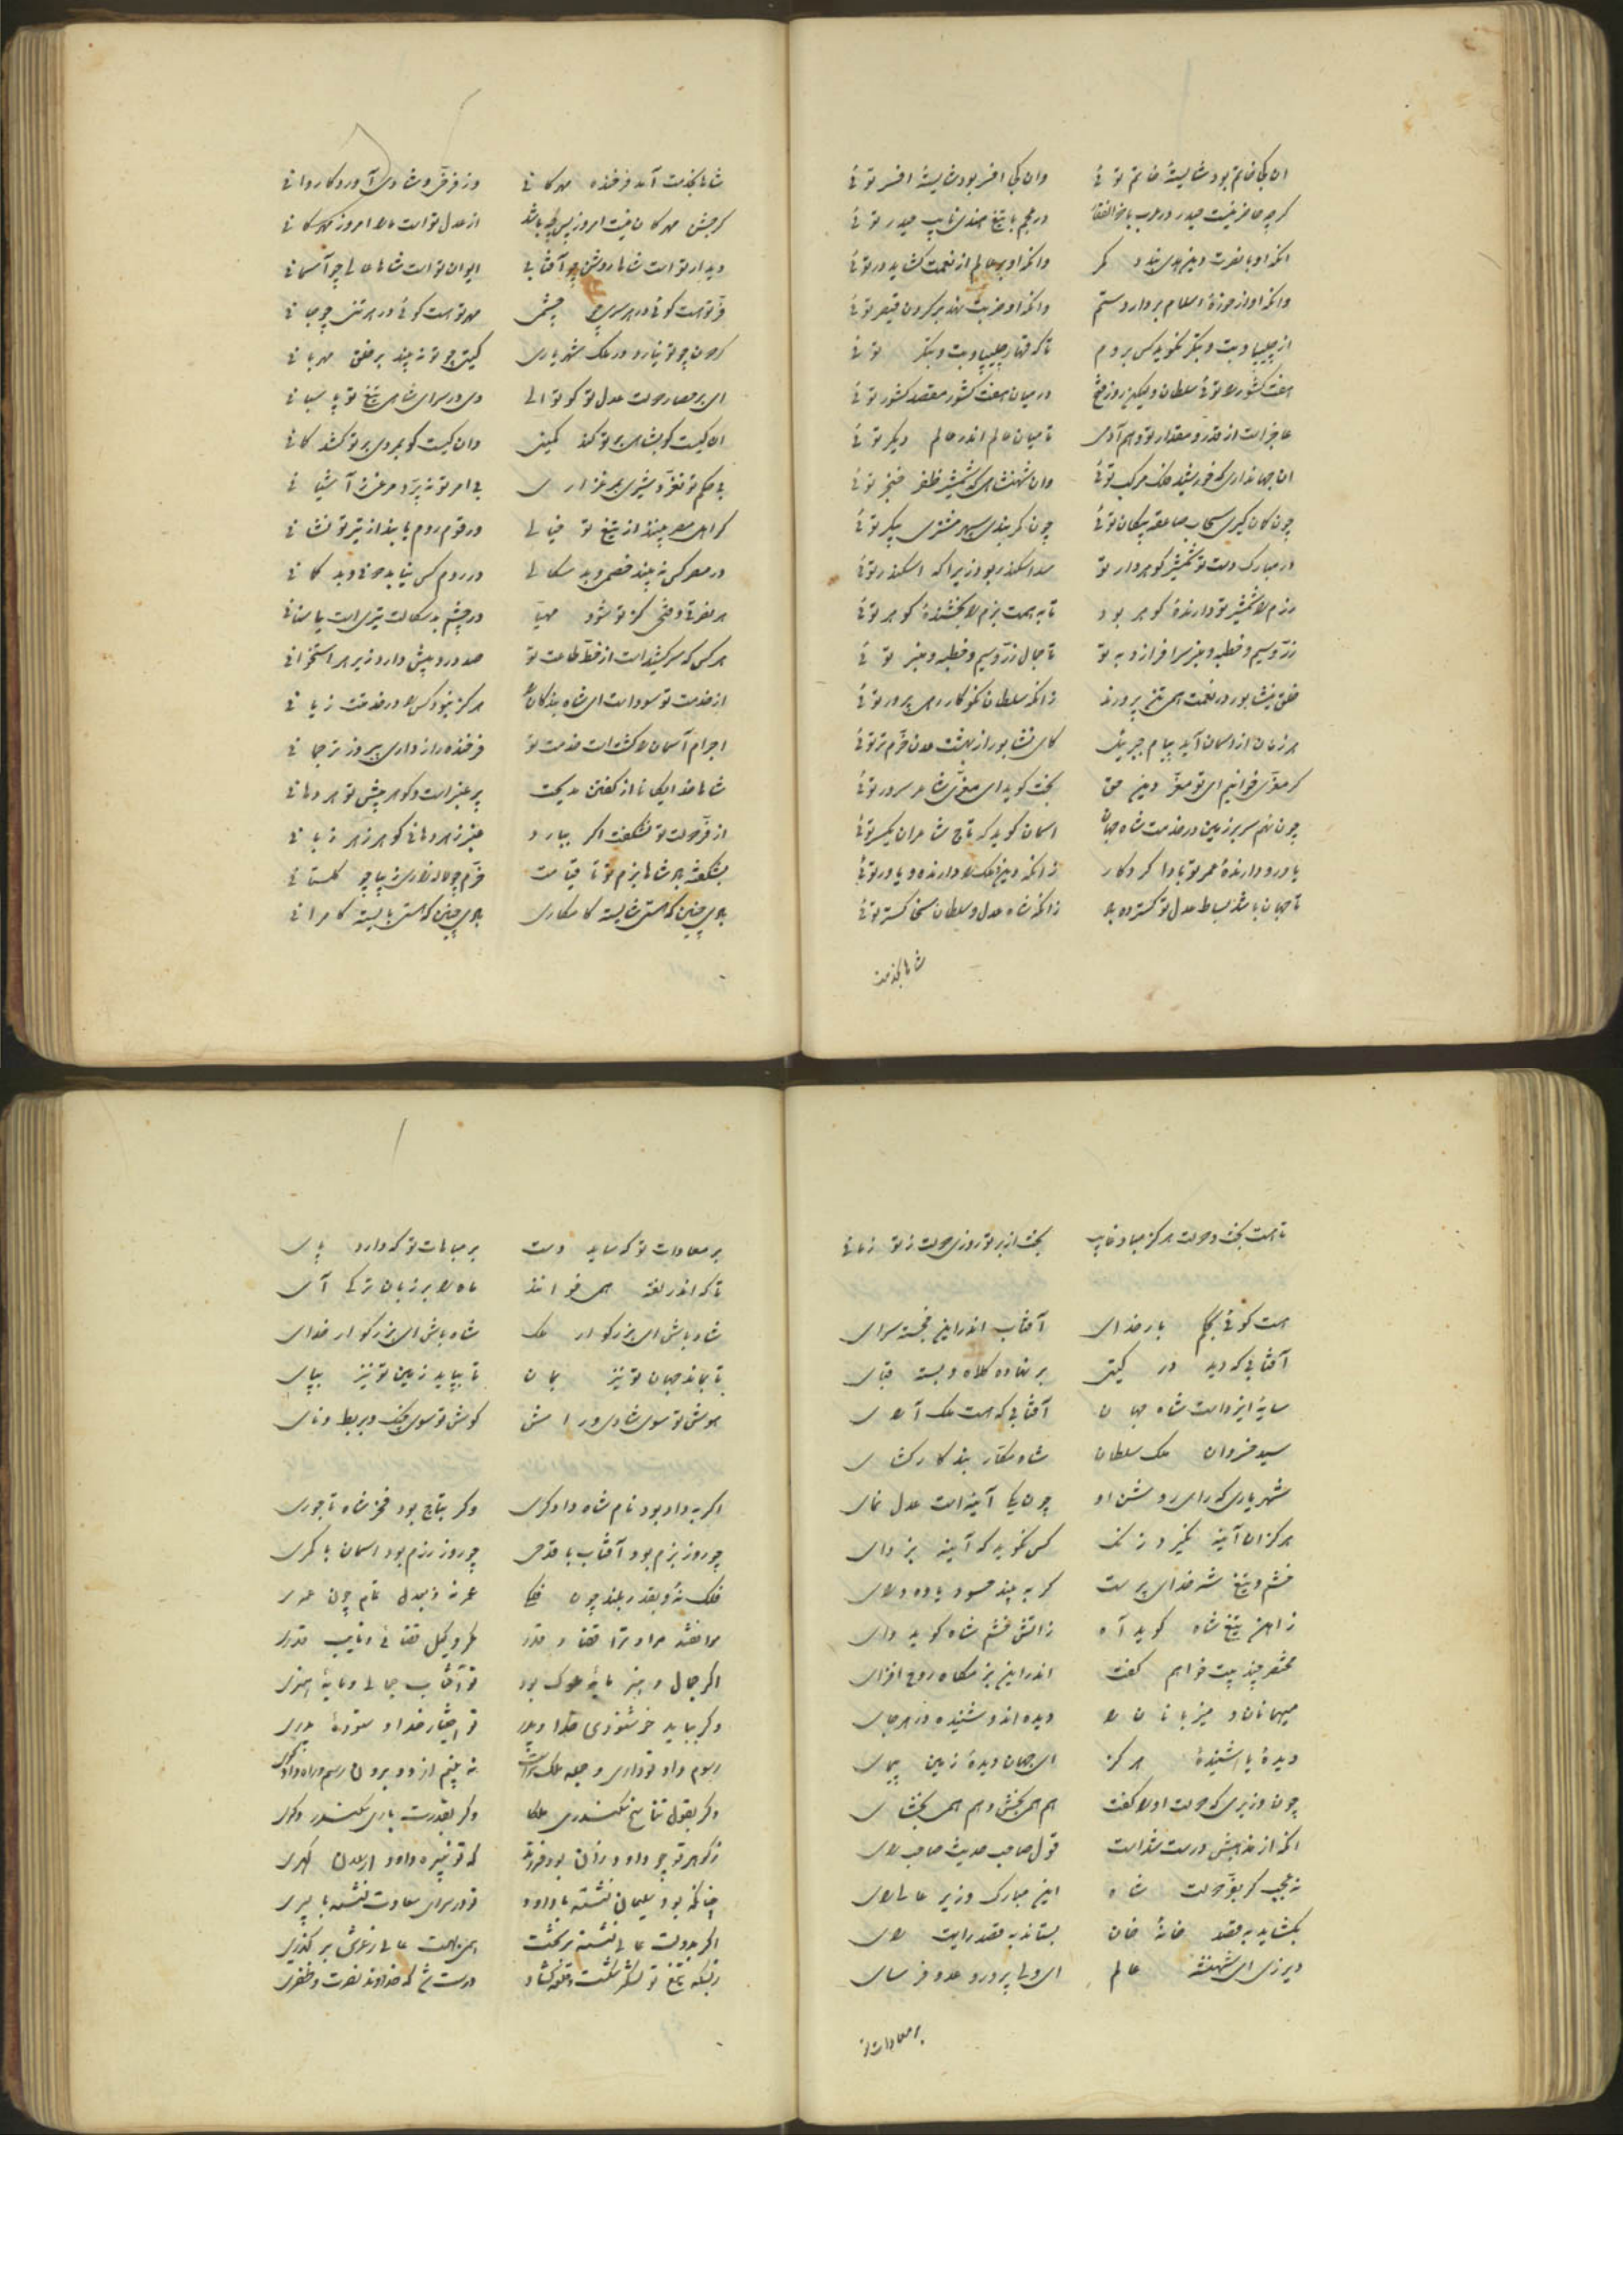 ان کی خاتم بود شایستهٔ خاتم توئی وان کی افسر بود شایستهٔ افسر توئی
کرچه حاضر نیست حیدر در عرب با ذوالفقار در عجم با تیغ هندی نایب حیدر توئی
انکه او با نصرت دین هدی بندد کمر وانکه او بر عالم از نعمت کشاید در توئی
وانکه او از حوزهٔ اسلام بردارد ستم وانکه او ضربت نهد بر کردن قیصر توئی
از چلیپا و بت و بتکر نکوید کس بروم تا که قهار چلیپا و بت و بتکر توئی
هفت کشور را توئی سلطان ولیکن روز فتح در میان هفت کشور مقصد کشور توئی
عاجزست از قدر و مقدار تو وهم آدمی تا میان عالم اندر عالم دیکر توئی
ان جهانداری که خورشید فلک مرکب توئی وان شهنشاهی که شمشیر ظفر خنجر توئی
چون کمان کیری سحاب صاعقه پیکان توئی چون کمر بندی سپهر مشتری پیکر توئی
در مبارک دست تو شمشیر کوهردار تو سد اسکندر بود زیرا که اسکندر توئی
رزم را شمشیر تو دارندهٔ کوهر بود تا به همت بزم را بخشندهٔ کوهر توئی
زر و سیم و خطبه و منبر سرافرازد به تو تا جمال زر و سیم و خطبه و منبر توئی
خلق نیشابور در نعمت همی تن پرورند زانکه سلطان نکوکار رهی پرور توئی
هر زمان از اسمان آید پیام جبرئیل کای نشابور از بهشت عدن خرم تر توئی
کر معزی خوانیم ای تو معز دین حق بخت کوید ای معزی شاعر سرور توئی
چون نهم سر بر زمین در خدمت شاه جهان اسمان کوید که تاج شاعران یکسر توئی
یاور و دارندهٔ عمر تو بادا کردکار زانکه دین و ملک را دارنده و یاور توئی
تا جهان باشد بساط عدل تو کسترده باد زانکه شاه عدل و سلطان سخا کستر توئی
شاها بخدمت
شاها بخدمت آمد فرخنده مهرکانی وز فر و شادی آورد کاروانی
کر جشن مهرکان نیست امروز پس چه باشد از عدل تو است ما را امروز مهرکانی
دیدار تو است شاها روشن چو آفتابی ایوان تو است شاها عالی چو آسمانی
فر تو هست کوئی در هر سری چو چشمی مهر تو هست کوئی در هر تنی چو جانی
کردون چو تو نیارد در ملک شهریاری کیتی چو تو نه بیند بر خلق مهربانی
ای بر حصار دولت عدل تو کوتوالی وی در سرای شاهی تیغ تو پاسبانی
ان کیست کو بشاهی بر تو کند کمینی وان کیست کو بمردی بر تو کشد کمانی
بی حکم تو نغرد شیری بمرغزاری بی امر تو نپرد مرغی ز آشیانی
کر اهل مصر بینند از تیغ تو خیالی ور قوم روم یابند از تیر تو نشانی
در مصر کس نه بیند خصمی و بد سکالی در روم کس نیابد خانی و بد کمانی
هر نصرتی و فتحی کز تو شود مهیا در چشم بد سکالت تیری است یا سنانی
هر کس که سر کشیدست از خط طاعت تو صد درد پیش دارد زیر هر استخوانی
از خدمت تو سود است ای شاه بندکان را هرکز نبود کس را در خدمتت زیانی
اجرام آسمان را کشت است خدمت تو فرخنده رازداری پیروز ترجمانی
شاها خدایکانا از کفتن مدیحت پر عنبر است و کوهر پیش تو هر دهانی
از فر دولت تو نشکفت اکر ببارد عنبر ز هر دهانی کوهر ز هر زبانی
بشکفته باد شاها بزم تو تا قیامت خرم چو لاله زاری زیبا چو کلستانی
بادی چنین که هستی شایسته کامکاری بادی چنین که هستی بایسته کامرانی
تا هست بخت و دولت هرکز مباد غایب بخت از بر تو روزی دولت ز تو زمانی
هست کوئی بحکم بار خدای آفتاب اندر این خجسته سرای
آفتابی که دید در کیتی بر نهاده کلاه و بسته قبای
سایهٔ ایزد است شاه جهان آفتابی که هست ملک آرای
سید خسروان ملک سلطان شاه بندکار کشای
شهریاری که رای روشن او چون یکی آینه است عدل نمای
هرکز ان آینه نکیرد زنک کس نکوید که آینه بزدای
خشم و تیغ شه خدای پرست کر به بیند حسود یاوه درای
ز اهن تیغ شاه کوید آه ز اتش خشم شاه کوید وای
مختصر چند بیت خواهم کفت اندر این بزمکاه روح افزای
میهمانان و میزبانان را دیده اند و شنیده در هر جای
دیدهٔ یا شنیدهٔ هرکز ای جهان دیدهٔ زمین پیمای
چون وزیری که دولت او را کفت هم همی بخش و هم همی بخشای
انکه از مذهبش درست شدست قول صاحب حدیث صاحب رای
نه عجب کر بفر دولت شاه این مبارک وزیر عالی رای
بکشاید به قصد خانهٔ خان بستاند به قصد رایت رای
دیر زی ای شهنشه عالم ای ولی پرور و عدو فرسای
بر معادات تو
بر معادات تو که ساید دست بر مباهات تو که دارد پای
تا که اندر لغة همی خوانند ماه را بر زبان ترکی آی
شاد باش ای بزرکوار ملک شاد باش ای بزرکوار خدای
تا بماند جهان تو نیز بمان تا بپاید زمین تو نیز بپای
هوش تو سوی شادی و رامش کوش تو سوی چنک و بربط و نای
اکر به داد بود نام شاه دادکری وکر بتاج بود فخر شاه تاجوری
چو روز بزم بود آفتاب با قدحی چو روز رزم بود اسمان با کمری
فلک نهٔ و بقدر بلند چون فلکی عمر نهٔ و بعدل تمام چون عمری
قضا و قدر مکر وکیل قضائی و نایب قدری
اکر جمال و هنر مایهٔ ملوک بود تو آفتاب جمالی و مایهٔ هنری
وکر بباید خشنودی خدا و پدر تو اختیار خدا و ستودهٔ پدری
رسوم داد تو داری و جمله ملک تراست نه بینم از دو برون رسم و راه دادکری
وکر بقول تناسخ سکندری ملکا وکر بقدرت باری سکندر دکری
ز کوهر تو چو داود زان بود فرزند که تو نبیرهٔ داود ارسلان کهری
چنانکه بود سلیمان نشسته با داود تو در سرای سعادت نشسته با پسری
اکر بدولت عالی نشسته بر تخت همی بهمت عالی ز عرش بر کذری
ز بسکه تیغ تو لشکر شکست و قلعه کشاد درست شد که خداوند نصرت و ظفری